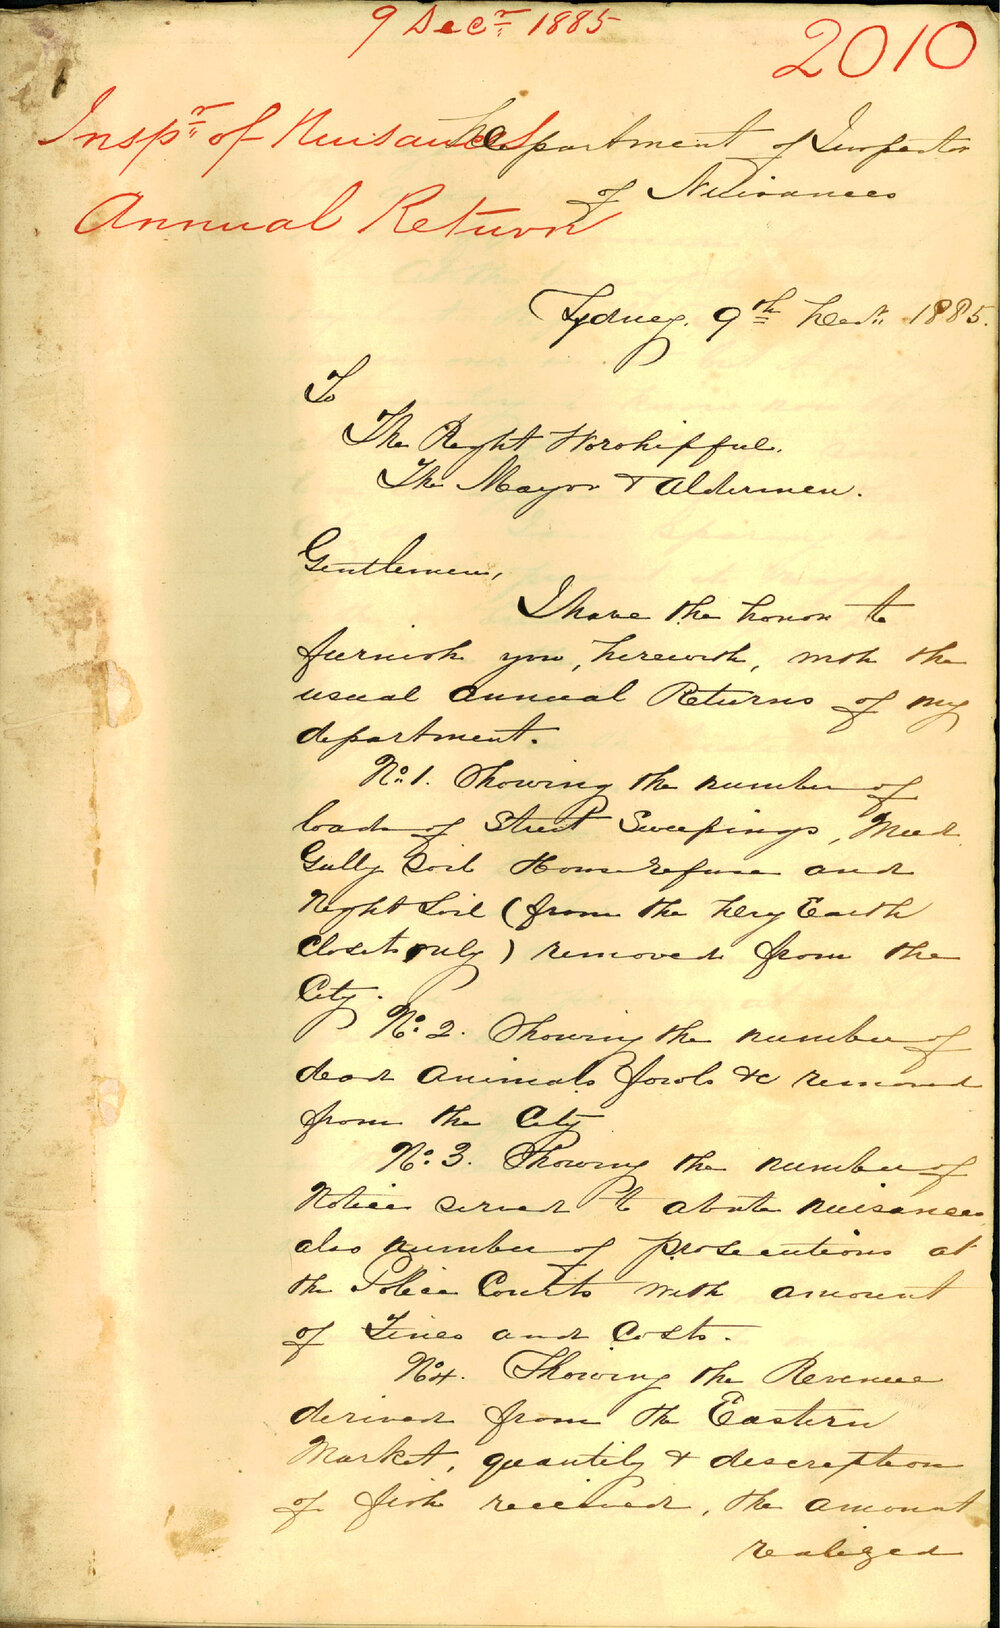 9 Decr 1885
2010
Inspr of Nuisances
Annual Return
Department of Inspector
of Nuisances
Sydney. 9th Decr. 1885.
To
The Right Worshipful.
The Mayor & Aldermen.
Gentlemen,
I have the honor to
furnish you, herewith, with the
usual annual Returns of my
department.
No. 1. Showing the number of
loads of Street Sweepings, Mud
Gully Soil House refuse and
Night Soil (from the Dry Earth
Closets only) removed from the
City.
No. 2. Showing the number of
dead animals fowls &c removed
from the City
No. 3. Showing the number of
Notices served to abate nuisances
also number of prosecutions at
the Police Courts with amount
of Fines and Costs.
No 4. Showing the Revenue
derived from the Eastern
Market, quantity & description
of fish received, the amount
realized